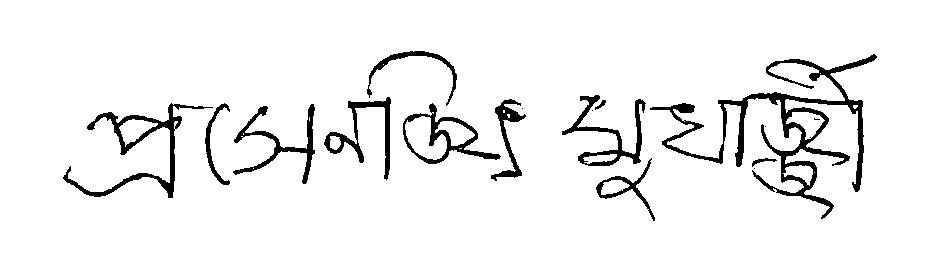 প্রসেনজিৎ মুখার্জ্জী